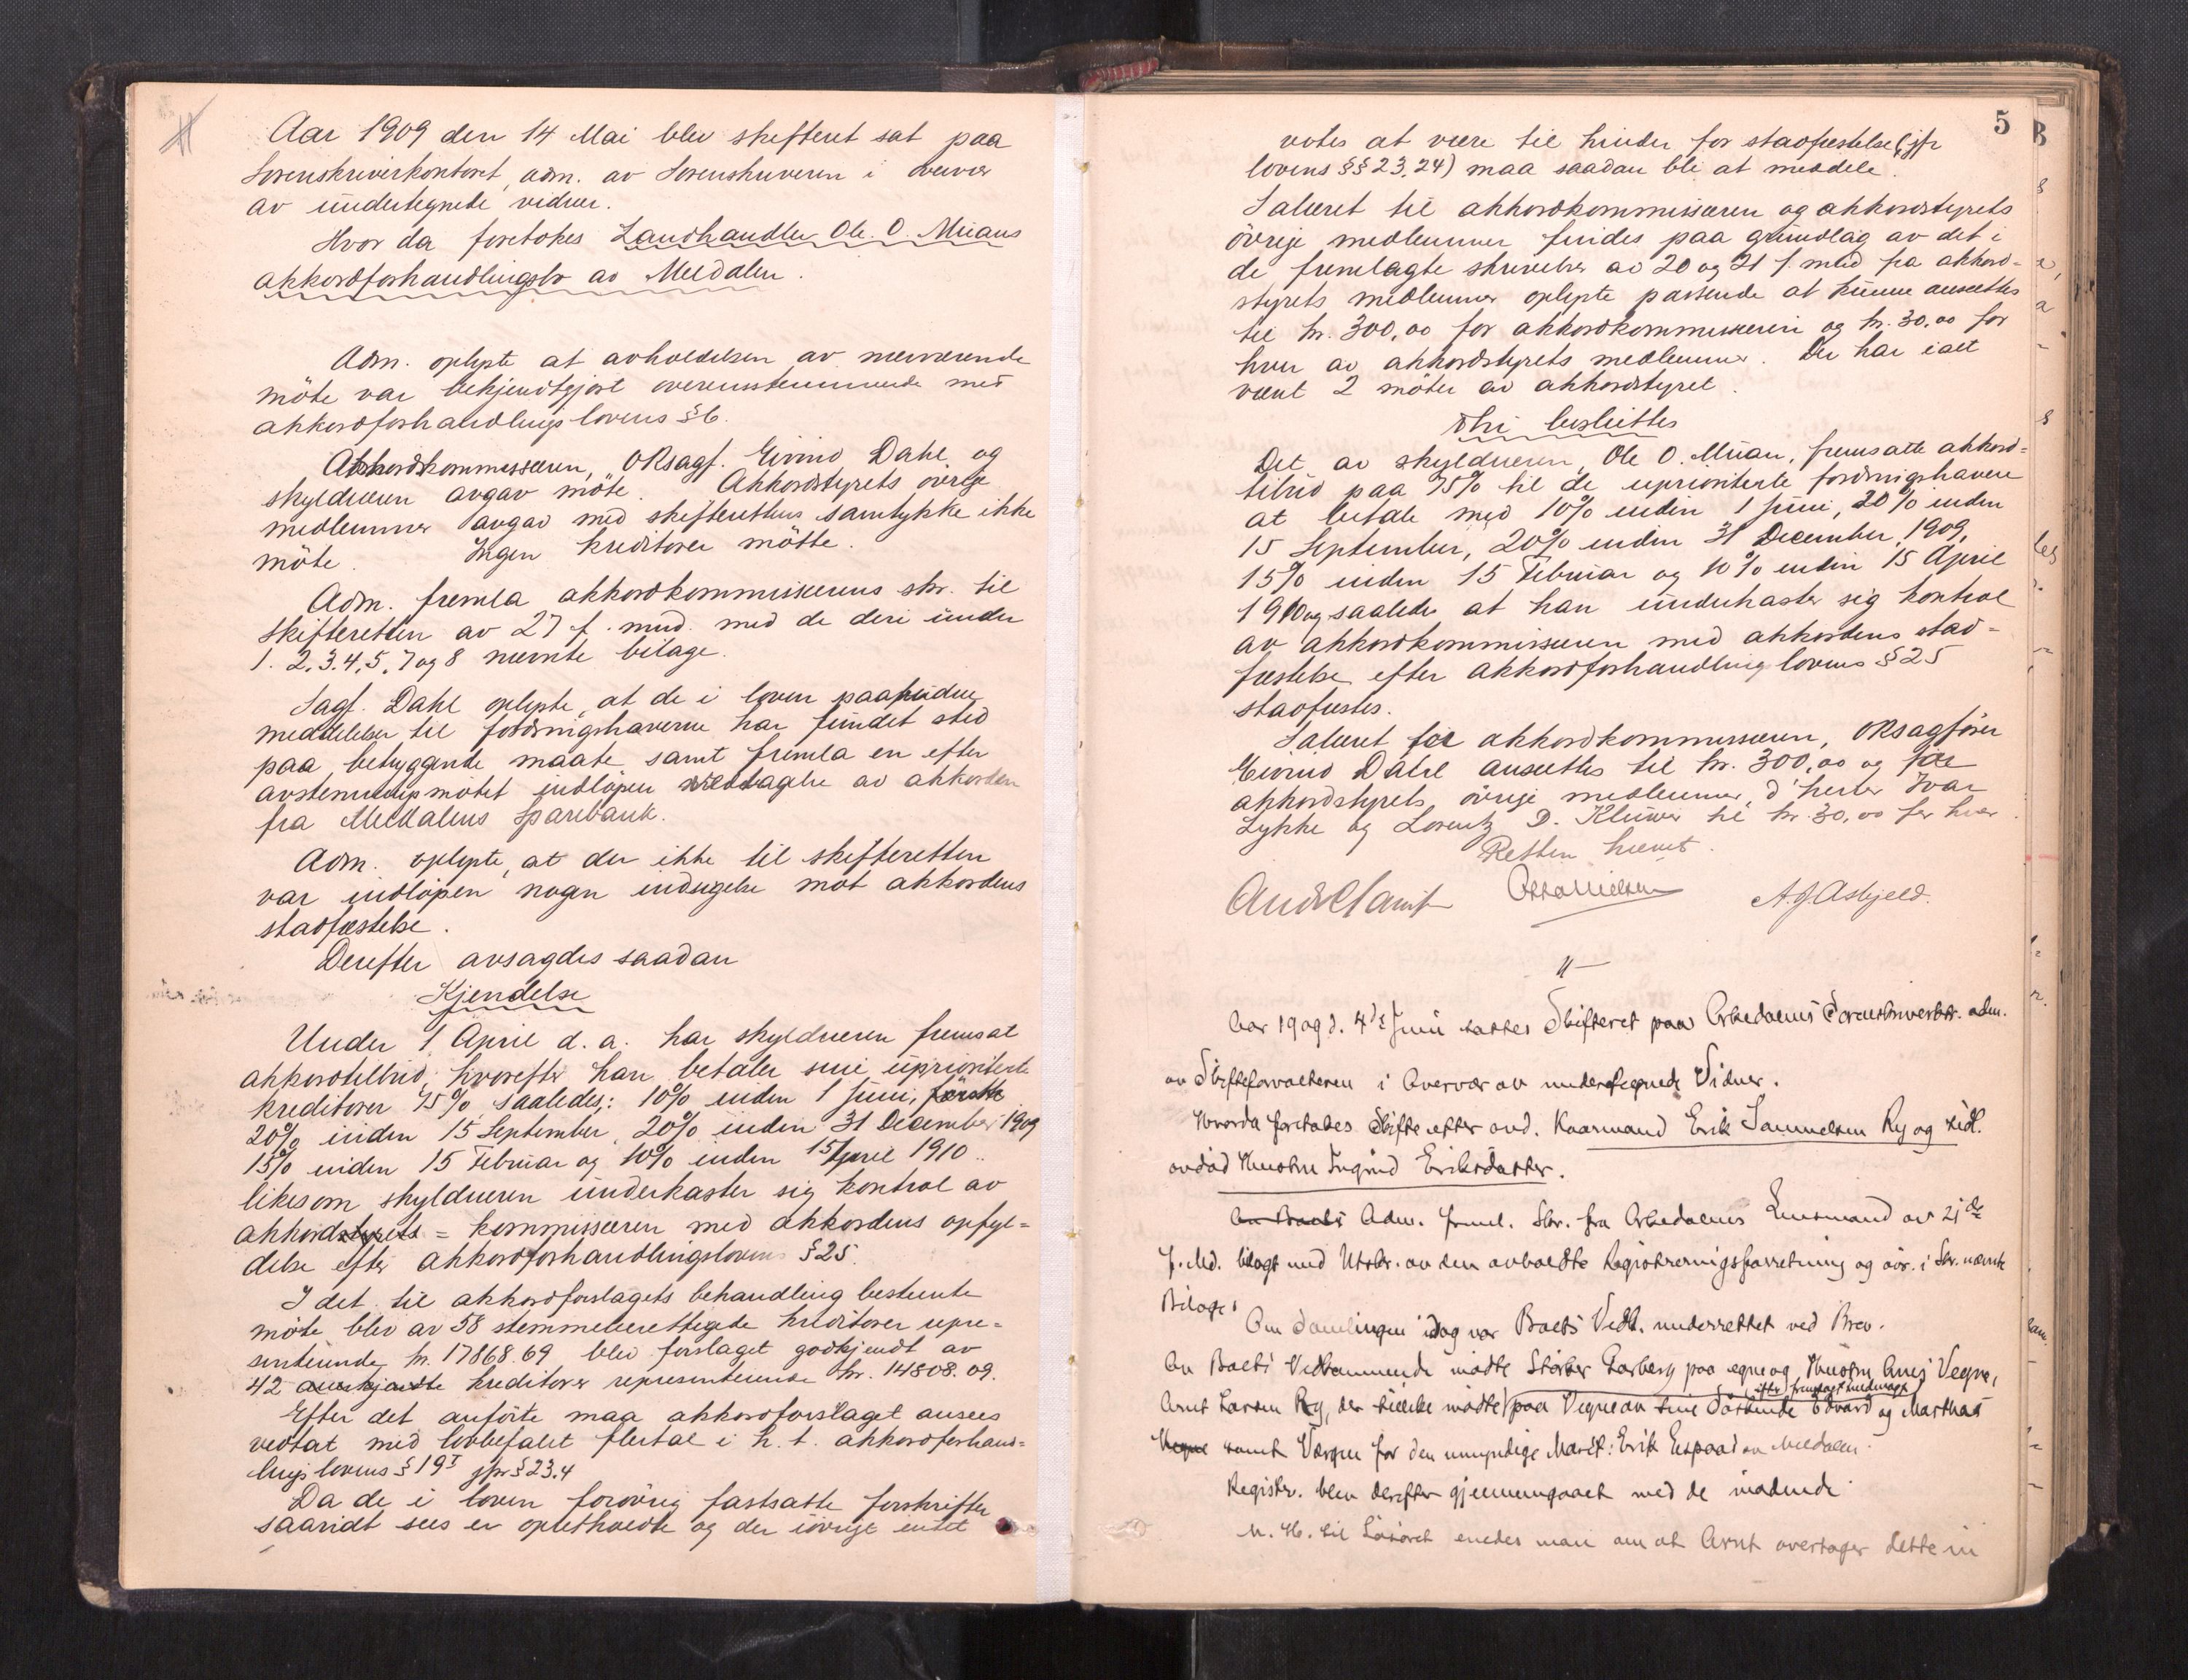 Aar 1909 den 14 Mai blev skifteret sat paa
Sorenskriverkontoret, adm. av Sorenskriveren i overvær
av undertegnede vidner.
Hvor da foretokes Landhandler Ole O. Muans
akkordforhandlingsbo av Meldalen.
Adm. oplyste at avholdelsen av nærværende
möte var bekjendtgjort overensstemmende med
akkordforhandlingslovens § 6.
Akkordkommissæren, ORsagf. Eivind Dahl og
skyldneren avgav möte. Akkordstyrets övrige
medlemmer avgav med skifterettens samtykke ikke
möte. Ingen kreditorer mötte.
Adm. fremla akkordkommissærens skr. til
skifteretten av 27 f. mnd. med de deri under
1. 2. 3. 4, 5, 7 og 8 nævnte bilage.
Sagf. Dahl oplyste, at de i loven paabudne
meddelelser til fordringshaverne har fundet sted
paa betryggende maate samt fremla en efter
avstemningsmötet indlöpen vedtagelse av akkorden
fra Meldalens Sparebank.
Adm. oplyste, at der ikke til skifteretten
var indlöpen nogen indsigelse mot akkordens
stadfæstelse.
Derefter avsagdes saadan
Kjendelse
Under 1 April d. a. har skyldneren fremsat
akkordtilbud, hvorefter han betaler sine uprioriterte
kreditorer 75% saaledes: 10% inden 1 Juni,
20% inden 15 September, 20% inden 31 December 1909
15% inden 15 Februar og 10% inden 15 April 1910..
likesom skyldneren underkaster sig kontrol av
akkordstyrets = kommissæren med akkordens opfyl=
delse efter akkordforhandlingslovens § 25.
I det til akkordforslagets behandling bestemte
möte blev av 58 stemmeberettigede kreditorer repre=
senterende kr. 17868.69 blev forslaget godkjendt av
42 kreditorer representerende kr. 14808.09.
Efter det anförte maa akkordforslaget ansees
vedtat med lovbefalet flertal i h. t. akkordforhand=
lings lovens § 19 I jfr § 23.4
Da de i loven forövrig fastsatte forskrifter
saavidt sees er opretholdte og der iövrigt intet
5
vites at være til hinder for stadfæstelse (jfr
lovens §§ 23. 24) maa saadan bli at meddele.
Salæret til akkordkommissæren og akkordstyrets
övrige medlemmer findes paa grundlag av det i
de fremlagte skrivelser av 20 og 21 f. mnd fra akkord=
styrets medlemmer oplyste passende at kunne ansættes
til kr. 300,00 for akkordkommissæren og kr. 30,00 for
hver av akkordstyrets medlemmer. Der har ialt
været 2 möter av akkordstyret.
Thi besluttes
Det av skyldneren, Ole O. Muan, fremsatte akkord=
tilbud paa 75% til de uprioriterte fordringshavere
at betale med 10% inden 1 Juni, 20% inden
15 September, 20% inden 31 December 1909,
15% inden 15 Februar og 10% inden 15 April
1910 og saaledes at han underkaster sig kontrol
av akkordkommissæren med akkordens stad=
fæstelse efter akkordforhandlingslovens § 25
stadfæstes.
Salæret for akkordkommissæren, ORsagförer
Eivind Dahl ansættes til kr. 300,00 og for
akkordstyrets övrige medlemmer, d'herrer Ivar
Lykke og Lorentz D. Klüwer til kr. 30,00 for hver.
Retten hævet.
Otto Nielsen A. J. Asbjeld.
Aar 1909 d. 4de Juni sattes Skifteret paa Orkedalens Sorenskriverktr. adm.
av Skifteforvalteren i Overvær av undertegnede Vidner.
Hvorda foretokes Skifte efter avd. Kaarmand Erik Samuelsen Ry og tidl.
avdød Hustru Ingrid Eriksdatter.
Adm. freml. Skr. fra Orkedalens Lensmand av 21de
f. Md. bilagt med Utskr. av den avholdte Registreringsforretning og øvr. i Skr. nævnte
Bilage.
Om Samlingen idag var Boets Vedk. underrettet ved Brev.
Av Boets Vedkommende mødte paa egne og Hustru Vegne,
Arnt Larsen Ry, der tillike mødte (efter fremlagt fuldmagt) paa Vegne av sine Søskende Edvard og Marthas
Vegne samt Værgen for den umyndige Marit: Erik av Meldalen.
Register. blev derefter gjennemgaaet med de mødende
M. H. til Løsøret enedes man om at Arnt overtager dette